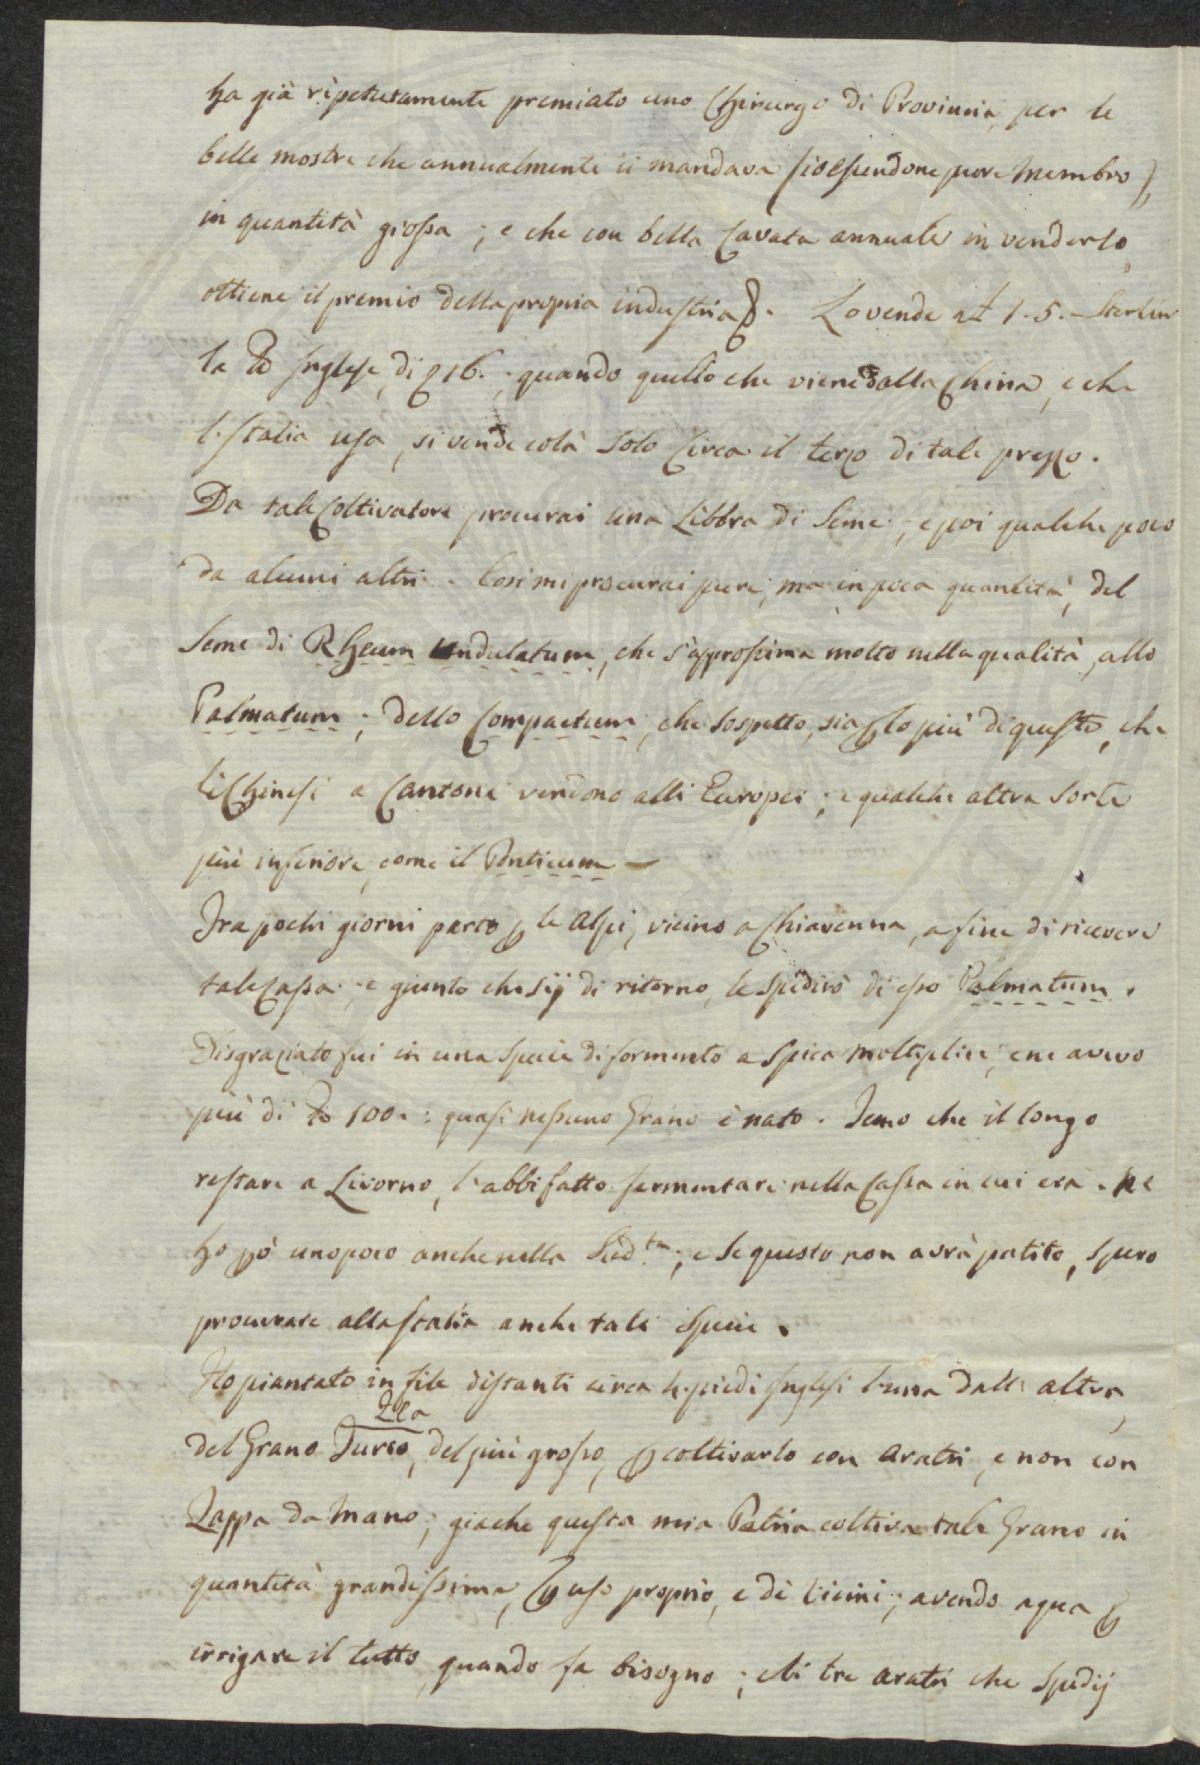 ha già ripetutamente premiato uno Chirurgo di Provincia, per le
belle mostre che annualmente ci mandava (io essendone pure Membro),
in quantità grossa; e che con bella Cavata annuale in venderlo,
ottiene il premio della propria industria. Lo vende a £ 1.5.- Sterlin
la ℔ Inglese, di 16.; quando quello che viene dalla China, e che
l'Italia usa, si vende colà solo Circa il terzo di tale prezzo.
Da tale Coltivatore procurai una Libbra di Seme; e poi qualche poco
da alcuni altri. Così mi procurai pure, ma in poca quantità, del
Seme di Rheum undulatum, che s'approssima molto nella qualità, allo
Palmatum; dello Compactum, che sospetto, sia p lo più di questo, che
li Chinesi a Cantone vendono alli Europei; e qualche altra Sorte
più inferiore, come il Ponticum —
Fra pochi giorni parto p le Alpi, vicino a Chiavenna, a fine di ricevere
tale Cassa; e giunto che sij di ritorno, le spedirò di esso Palmatum.
Disgraziato fui in una Specie di formento a Spica moltiplice, che avevo
più di ℔ 100.: quasi nessuno Grano è nato. Temo che il longo
restare a Livorno, l'abbi fatto fermentare nella Cassa in cui era. Ne
ho pò uno poco anche nella Sud.ta; e se questo non avrà patito, spero
procurare alla Italia anche tale Specie.
Ho piantato in file distanti circa 4. piedi Inglesi l'una dall altra,
Zea
del Grano Turco, del più grosso, p coltivarlo con Aratri, e non con
Zappa da Mano; giache questa mia Patria coltiva tale Grano in
quantità grandissima, p uso proprio, e di Vicini; avendo aqua p
irrigare il tutto, quando fa bisogno; e li tre aratri che Spedij